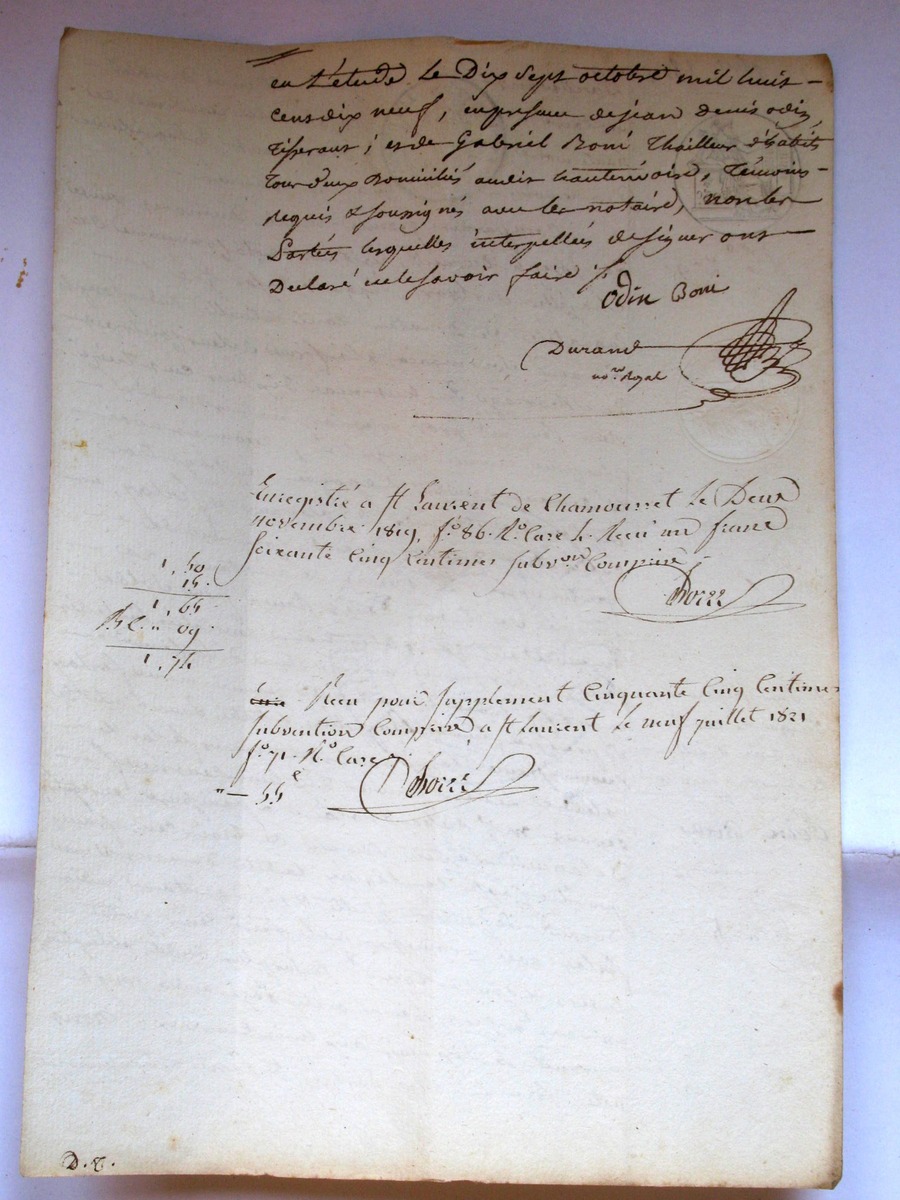 en L'etude Le Dix Sept octobre mil huit
cent dix neuf, en presence de jean denis odin,
Tisserant ; et de Gabriel Boni Thailleur d'habits
Tour deux Domiciliés audit hauterivoire, Témoins
Requis & soussignés avec le notaire, non les
Parties lesquelles interpellées de signer ont
Declaré ne le savoir faire ./.
Odin Boni
Durand
no.re Royal
Enregistré a St Laurent de Chamousset Le Deux
novembre 1819, fo. 86. Ro. Case 4. Recu un franc
Soixante Cinq Centimes Subv.on Comprise
1, 50
15
1, 65
" 09
1, 74
Recu pour Supplement Cinquante Cinq Centimes
Subvention Comprise a St Laurent Le neuf juillet 1821
fo. 71. Ro. Case
" — 55 c
D. T.